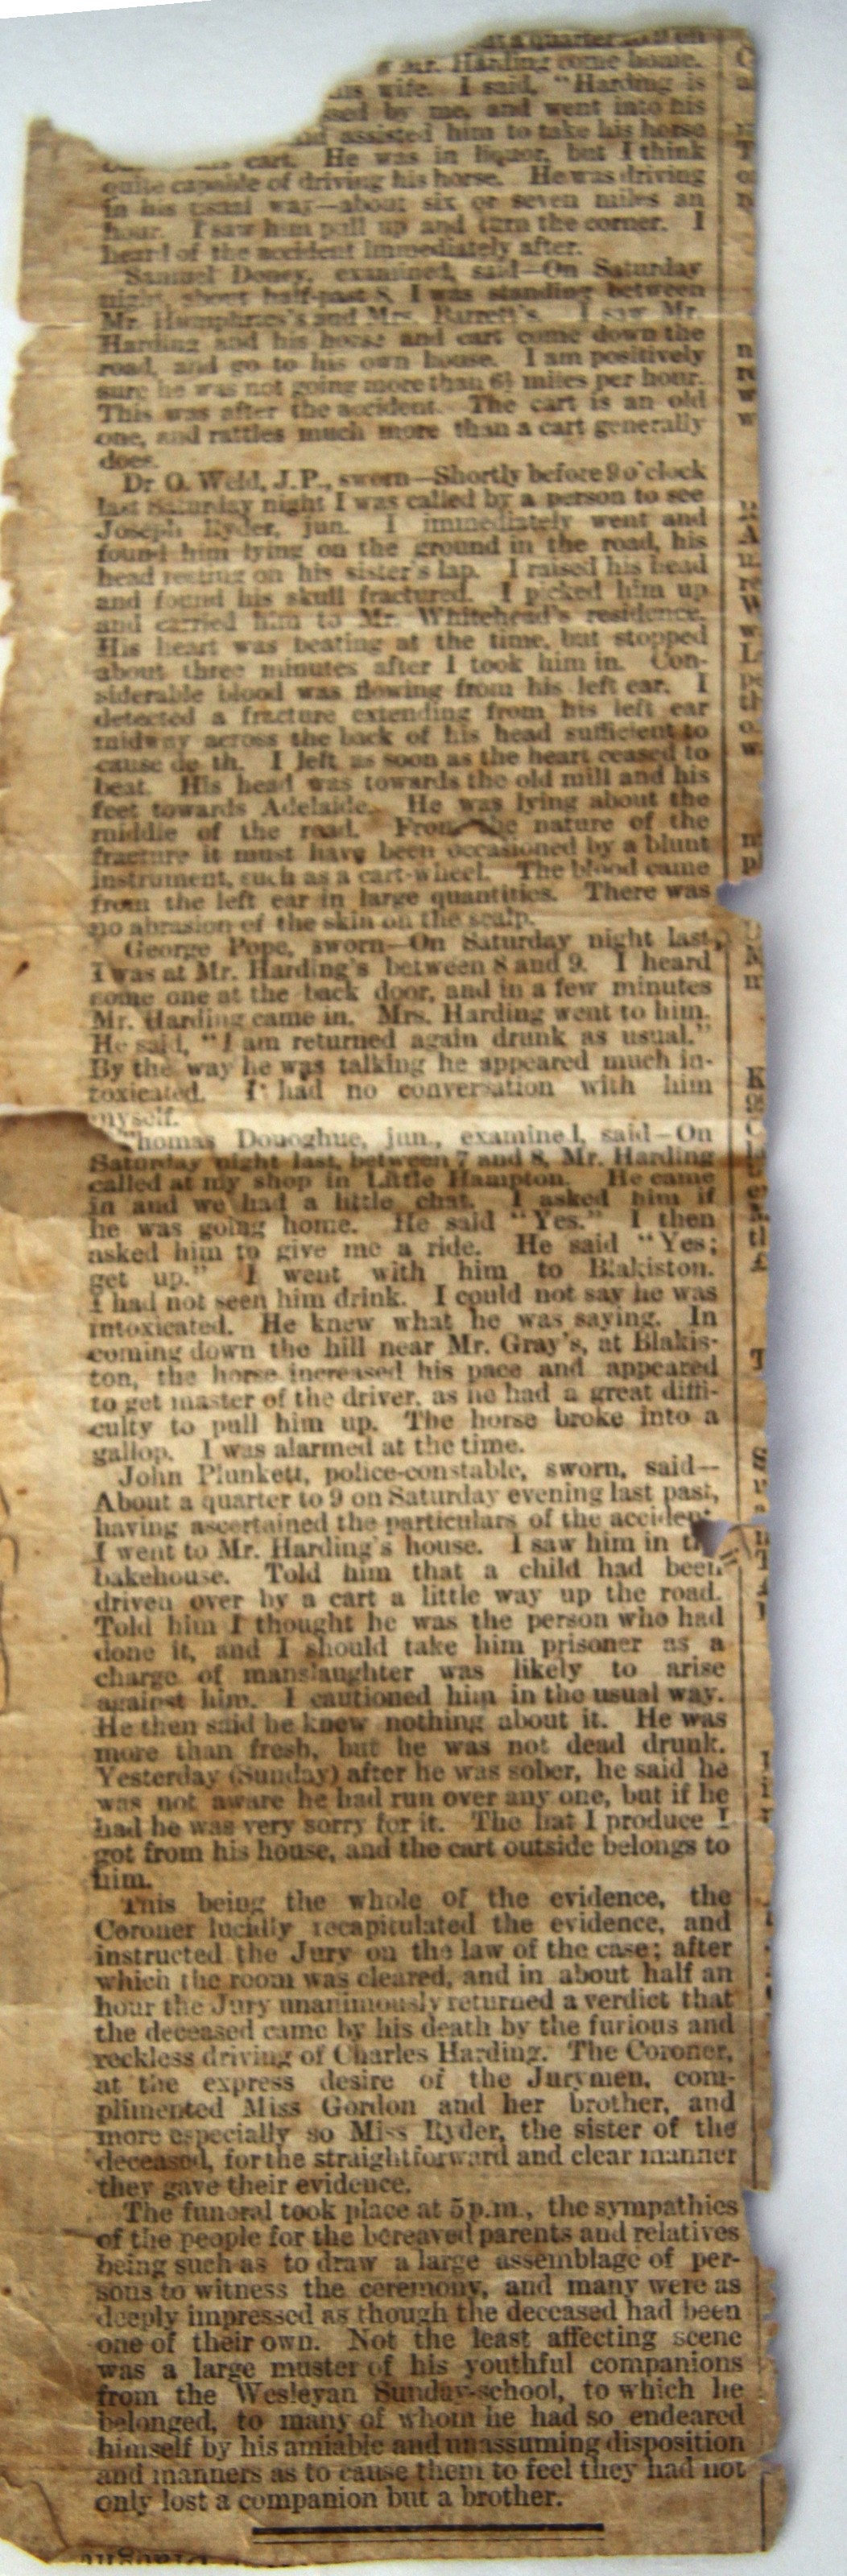 at a quarter
Mr. Harding come home.
his wife. I said, "Harding is
ssed by me, and went into his
nd assisted him to take his horse
cart. He was in liquor, but I think
quite capable of driving his horse. He was driving
in his usual way—about six or seven miles an
hour. I saw him pull up and turn the corner. I
heard of the accident immediately after.
Samuel Doney, examined, said—On Saturday
night, about half-past 8, I was standing between
Mr. Humphries's and Mrs. Barrett's. I saw Mr.
Harding and his horse and cart come down the
road, and go to his own house. I am positively
sure he was not going more than 6½ miles per hour.
This was after the accident. The cart is an old
one, and rattles much more than a cart generally
does.
Dr O. Weld, J.P., sworn—Shortly before 9 o'clock
last Saturday night I was called by a person to see
Joseph Ryder, jun. I immediately went and
found him lying on the ground in the road, his
head resting on his sister's lap. I raised his head
and found his skull fractured. I picked him up
and carried him to Mr. Whitehead's residence.
His heart was beating at the time, but stopped
about three minutes after I took him in. Con-
siderable blood was flowing from his left ear. I
detected a fracture extending from his left ear
midway across the back of his head sufficient to
cause de th. I left as soon as the heart ceased to
beat. His head was towards the old mill and his
feet towards Adelaide. He was lying about the
middle of the road. From the nature of the
fracture it must have been occasioned by a blunt
instrument, such as a cart-wheel. The blood came
from the left ear in large quantities. There was
no abrasion of the skin on the scalp.
George Pope, sworn—On Saturday night last,
I was at Mr. Harding's between 8 and 9. I heard
some one at the back door, and in a few minutes
Mr. Harding came in. Mrs. Harding went to him.
He said, "I am returned again drunk as usual."
By the way he was talking he appeared much in-
toxicated. I had no conversation with him
myself.
Thomas Donoghue, jun., examine l, said—On
Saturday night last, between 7 and 8, Mr. Harding
called at my shop in Little Hampton. He came
in and we had a little chat. I asked him if
he was going home. He said "Yes." I then
asked him to give me a ride. He said "Yes;
get up." I went with him to Blakiston.
I had not seen him drink. I could not say he was
intoxicated. He knew what he was saying. In
coming down the hill near Mr. Gray's, at Blakis-
ton, the horse increased his pace and appeared
to get master of the driver, as he had a great diffi-
culty to pull him up. The horse broke into a
gallop. I was alarmed at the time.
John Plunkett, police-constable, sworn, said—
About a quarter to 9 on Saturday evening last past,
having ascertained the particulars of the accident
I went to Mr. Harding's house. I saw him in th
bakehouse. Told him that a child had been
driven over by a cart a little way up the road.
Told him I thought he was the person who had
done it, and I should take him prisoner as a
charge of manslaughter was likely to arise
against him. I cautioned him in the usual way.
He then said he knew nothing about it. He was
more than fresh, but he was not dead drunk.
Yesterday (Sunday) after he was sober, he said he
was not aware he had run over any one, but if he
had he was very sorry for it. The hat I produce I
got from his house, and the cart outside belongs to
him.
This being the whole of the evidence, the
Coroner lucidly recapitulated the evidence, and
instructed the Jury on the law of the case; after
which the room was cleared, and in about half an
hour the Jury unanimously returned a verdict that
the deceased came by his death by the furious and
reckless driving of Charles Harding. The Coroner,
at the express desire of the Jurymen, com-
plimented Miss Gordon and her brother, and
more especially so Miss Ryder, the sister of the
deceased, for the straightforward and clear manner
they gave their evidence.
The funeral took place at 5 p.m., the sympathies
of the people for the bereaved parents and relatives
being such as to draw a large assemblage of per-
sons to witness the ceremony, and many were as
deeply impressed as though the deceased had been
one of their own. Not the least affecting scene
was a large muster of his youthful companions
from the Wesleyan Sunday-school, to which he
belonged, to many of whom he had so endeared
himself by his amiable and unassuming disposition
and manners as to cause them to feel they had not
only lost a companion but a brother.